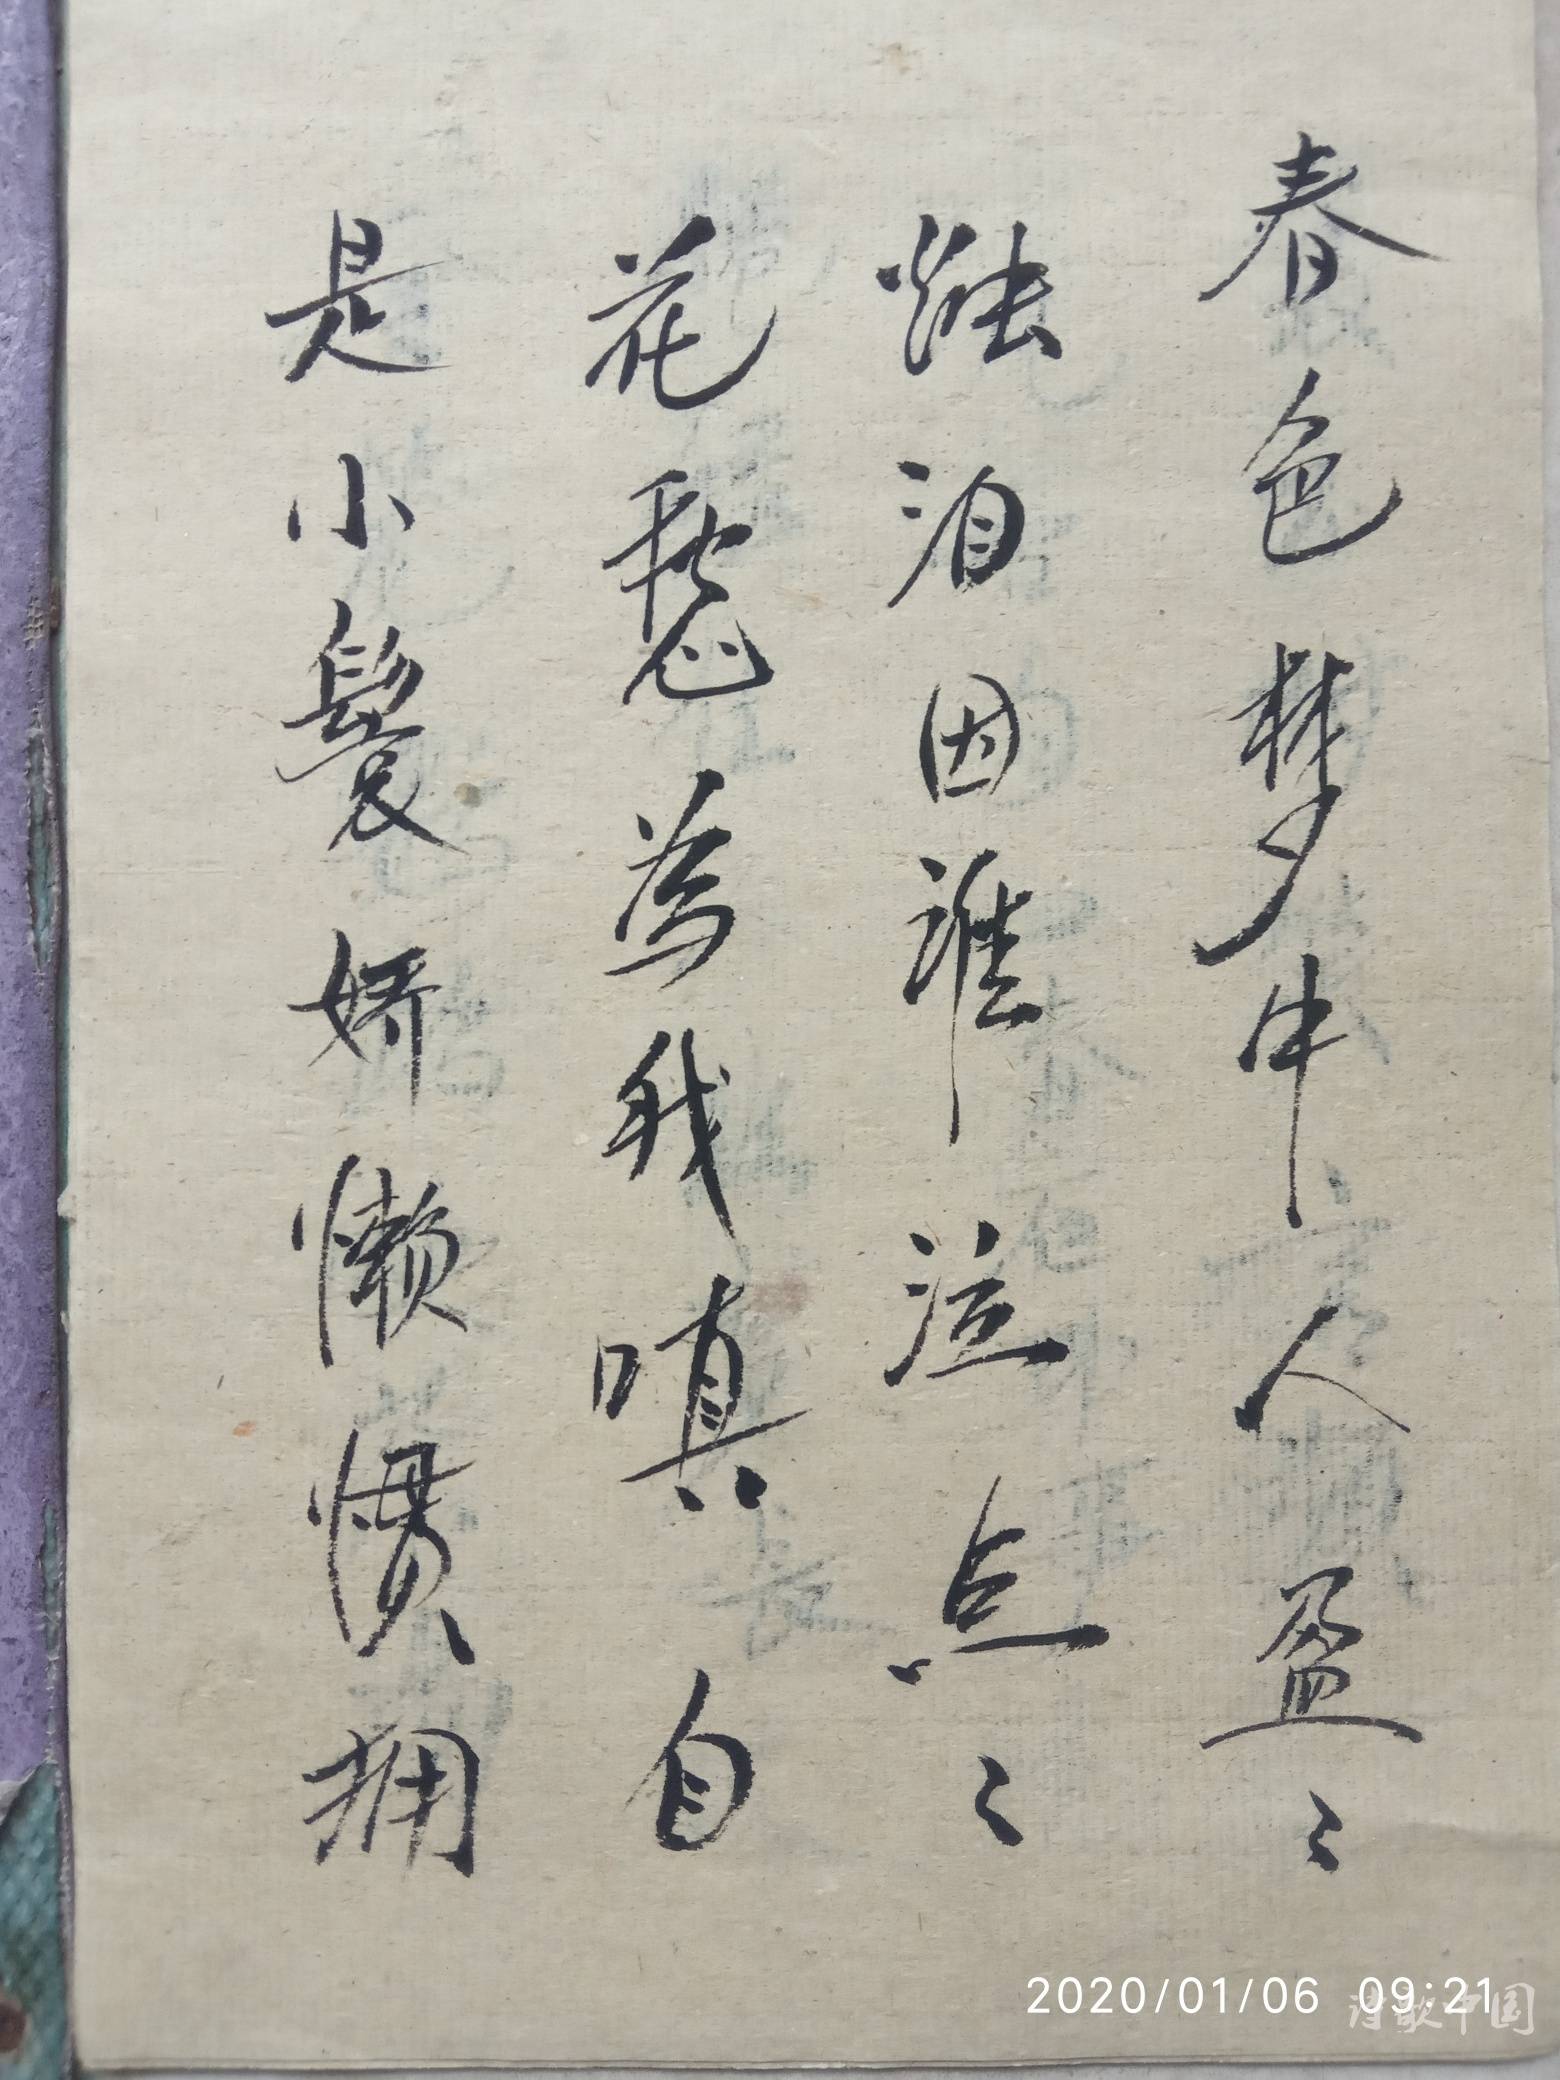 春色梦中人盈〻
烛泪因谁泣点〻
花愁为我嗔自
是小鬟娇懒惯拥
2020/01/06 09:21
诗歌中国